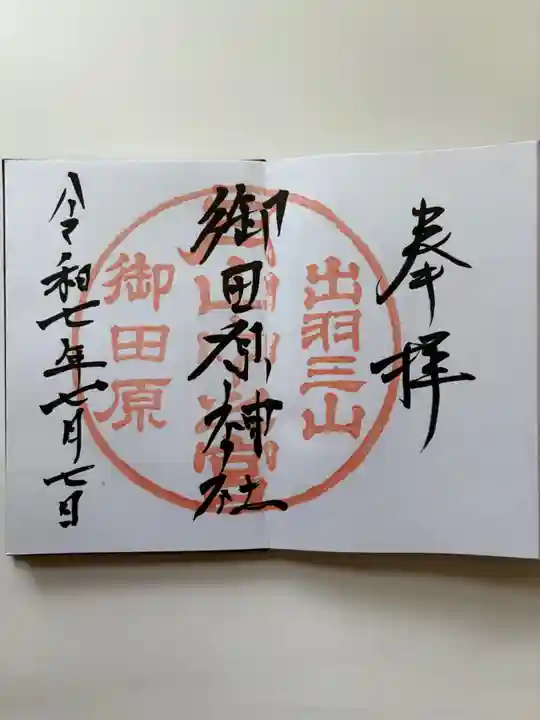 奉拝
出羽三山
御田原神社
御田原
令和七年七月七日